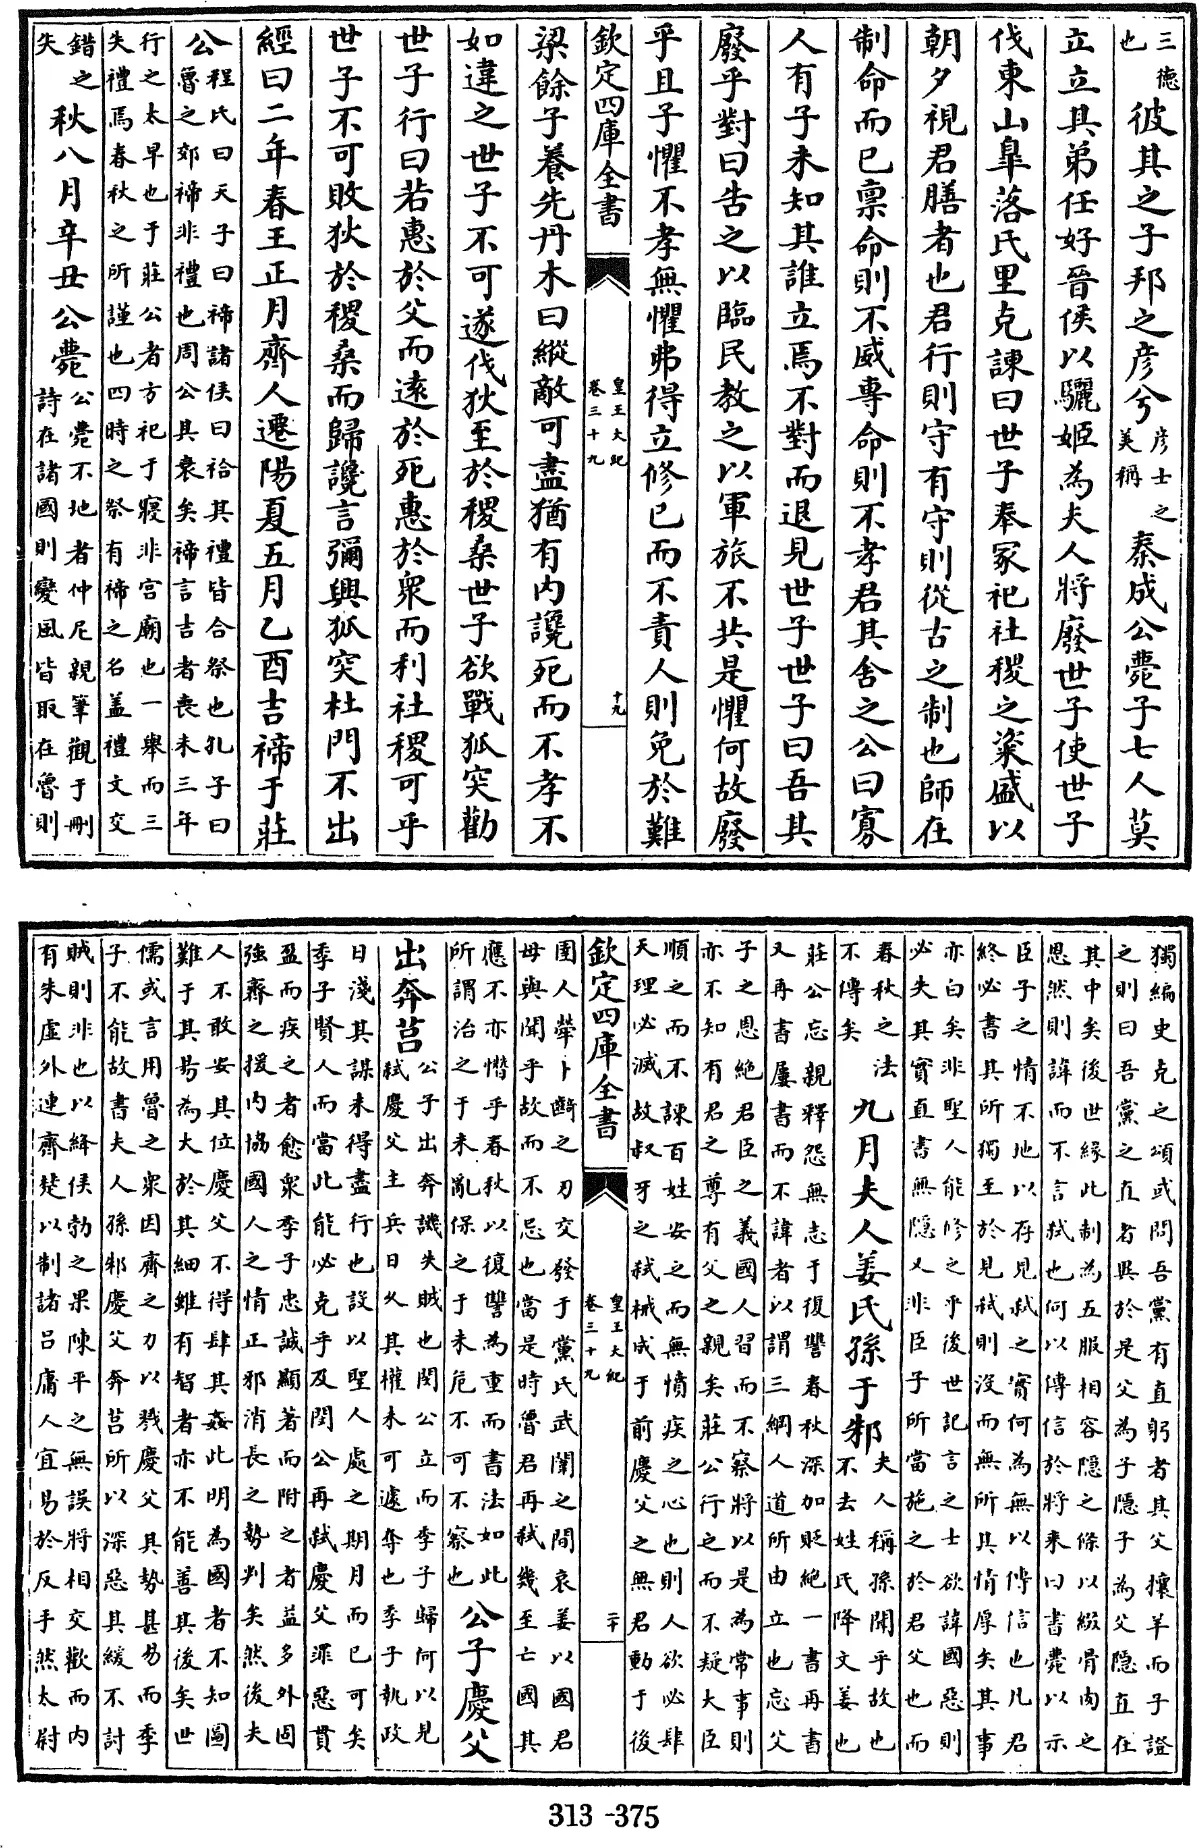 三德也彼其之子邦之彦兮彦士之美稱秦成公薨子七人莫
立立其弟任好晉侯以驪姬為夫人將廢世子使世子
伐東山臯落氏里克諫曰世子奉冢祀社稷之粢盛以
朝夕視君膳者也君行則守有守則從古之制也師在
制命而已禀命則不威專命則不孝君其舍之公曰寡
人有子未知其誰立焉不對而退見世子世子曰吾其
廢乎對曰告之以臨民教之以軍旅不共是懼何故廢
乎且子懼不孝無懼弗得立修已而不責人則免於難
欽定四庫全書
皇王大紀
卷三十九
十九
梁餘子養先丹木曰縱敵可盡猶有内讒死而不孝不
如違之世子不可遂伐狄至於稷桑世子欲戰狐突勸
世子行曰若惠於父而遠於死惠於衆而利社稷可乎
世子不可敗狄於稷桑而歸讒言彌興狐突杜門不出
經曰二年春王正月齊人遷陽夏五月乙酉吉禘于莊
公程氏曰天子曰禘諸侯曰祫其禮皆合祭也孔子曰
魯之郊禘非禮也周公其衰矣禘言吉者喪未三年
行之太早也于莊公者方祀于寢非宫廟也一舉而三
失禮焉春秋之所謹也四時之祭有禘之名盖禮文交
錯之
失秋八月辛丑公薨公薨不地者仲尼親筆觀于刪
詩在諸國則變風皆取在魯則
獨編史克之頌或問吾黨有直躬者其父攘羊而子證
之則曰吾黨之直者異於是父為子隱子為父隱直在
其中矣後世緣此制為五服相容隱之條以綴骨肉之
恩然則諱而不言弑也何以傳信於將来曰書薨以示
臣子之情不地以存見弑之實何為無以傳信也凡君
終必書其所獨至於見弑則没而無所其情厚矣其事
亦白矣非聖人能修之乎後世記言之士欲諱國惡則
必失其實直書無隱又非臣子所當施之於君父也而
春秋之法
不傳矣九月夫人姜氏孫于邾夫人稱孫聞乎故也
不去姓氏降文姜也
莊公忘親釋怨無志于復讐春秋深加貶絶一書再書
又再書屢書而不諱者以謂三綱人道所由立也忘父
子之恩絶君臣之義國人習而不察將以是為常事則
亦不知有君之尊有父之親矣莊公行之而不疑大臣
順之而不諫百姓安之而無憤疾之心也則人欲必肆
天理必滅故叔牙之弑械成于前慶父之無君動于後
欽定四庫全書
皇王大紀
卷三十九
二十
圉人犖卜齮之刃交發于黨氏武闈之間哀姜以國君
母與聞乎故而不忌也當是時魯君再弑幾至亡國其
應不亦憯乎春秋以復讐為重而書法如此
所謂治之于未亂保之于未危不可不察也公子慶父
出奔莒公子出奔譏失賊也閔公立而季子歸何以見
弑慶父主兵日久其權未可遽奪也季子執政
日淺其謀未得盡行也設以聖人處之期月而已可矣
季子賢人而當此能必克乎及閔公再弑慶父罪惡貫
盈而疾之者愈衆季子忠誠顯著而附之者益多外固
強齊之援内協國人之情正邪消長之勢判矣然後夫
人不敢安其位慶父不得肆其姦此明為國者不知圖
難于其易為大於其細雖有智者亦不能善其後矣世
儒或言用魯之衆因齊之力以戮慶父其勢甚易而季
子不能故書夫人孫邾慶父奔莒所以深惡其緩不討
賊則非也以絳侯勃之果陳平之無誤將相交歡而内
有朱虚外連齊楚以制諸吕庸人宜易於反手然太尉
313-375